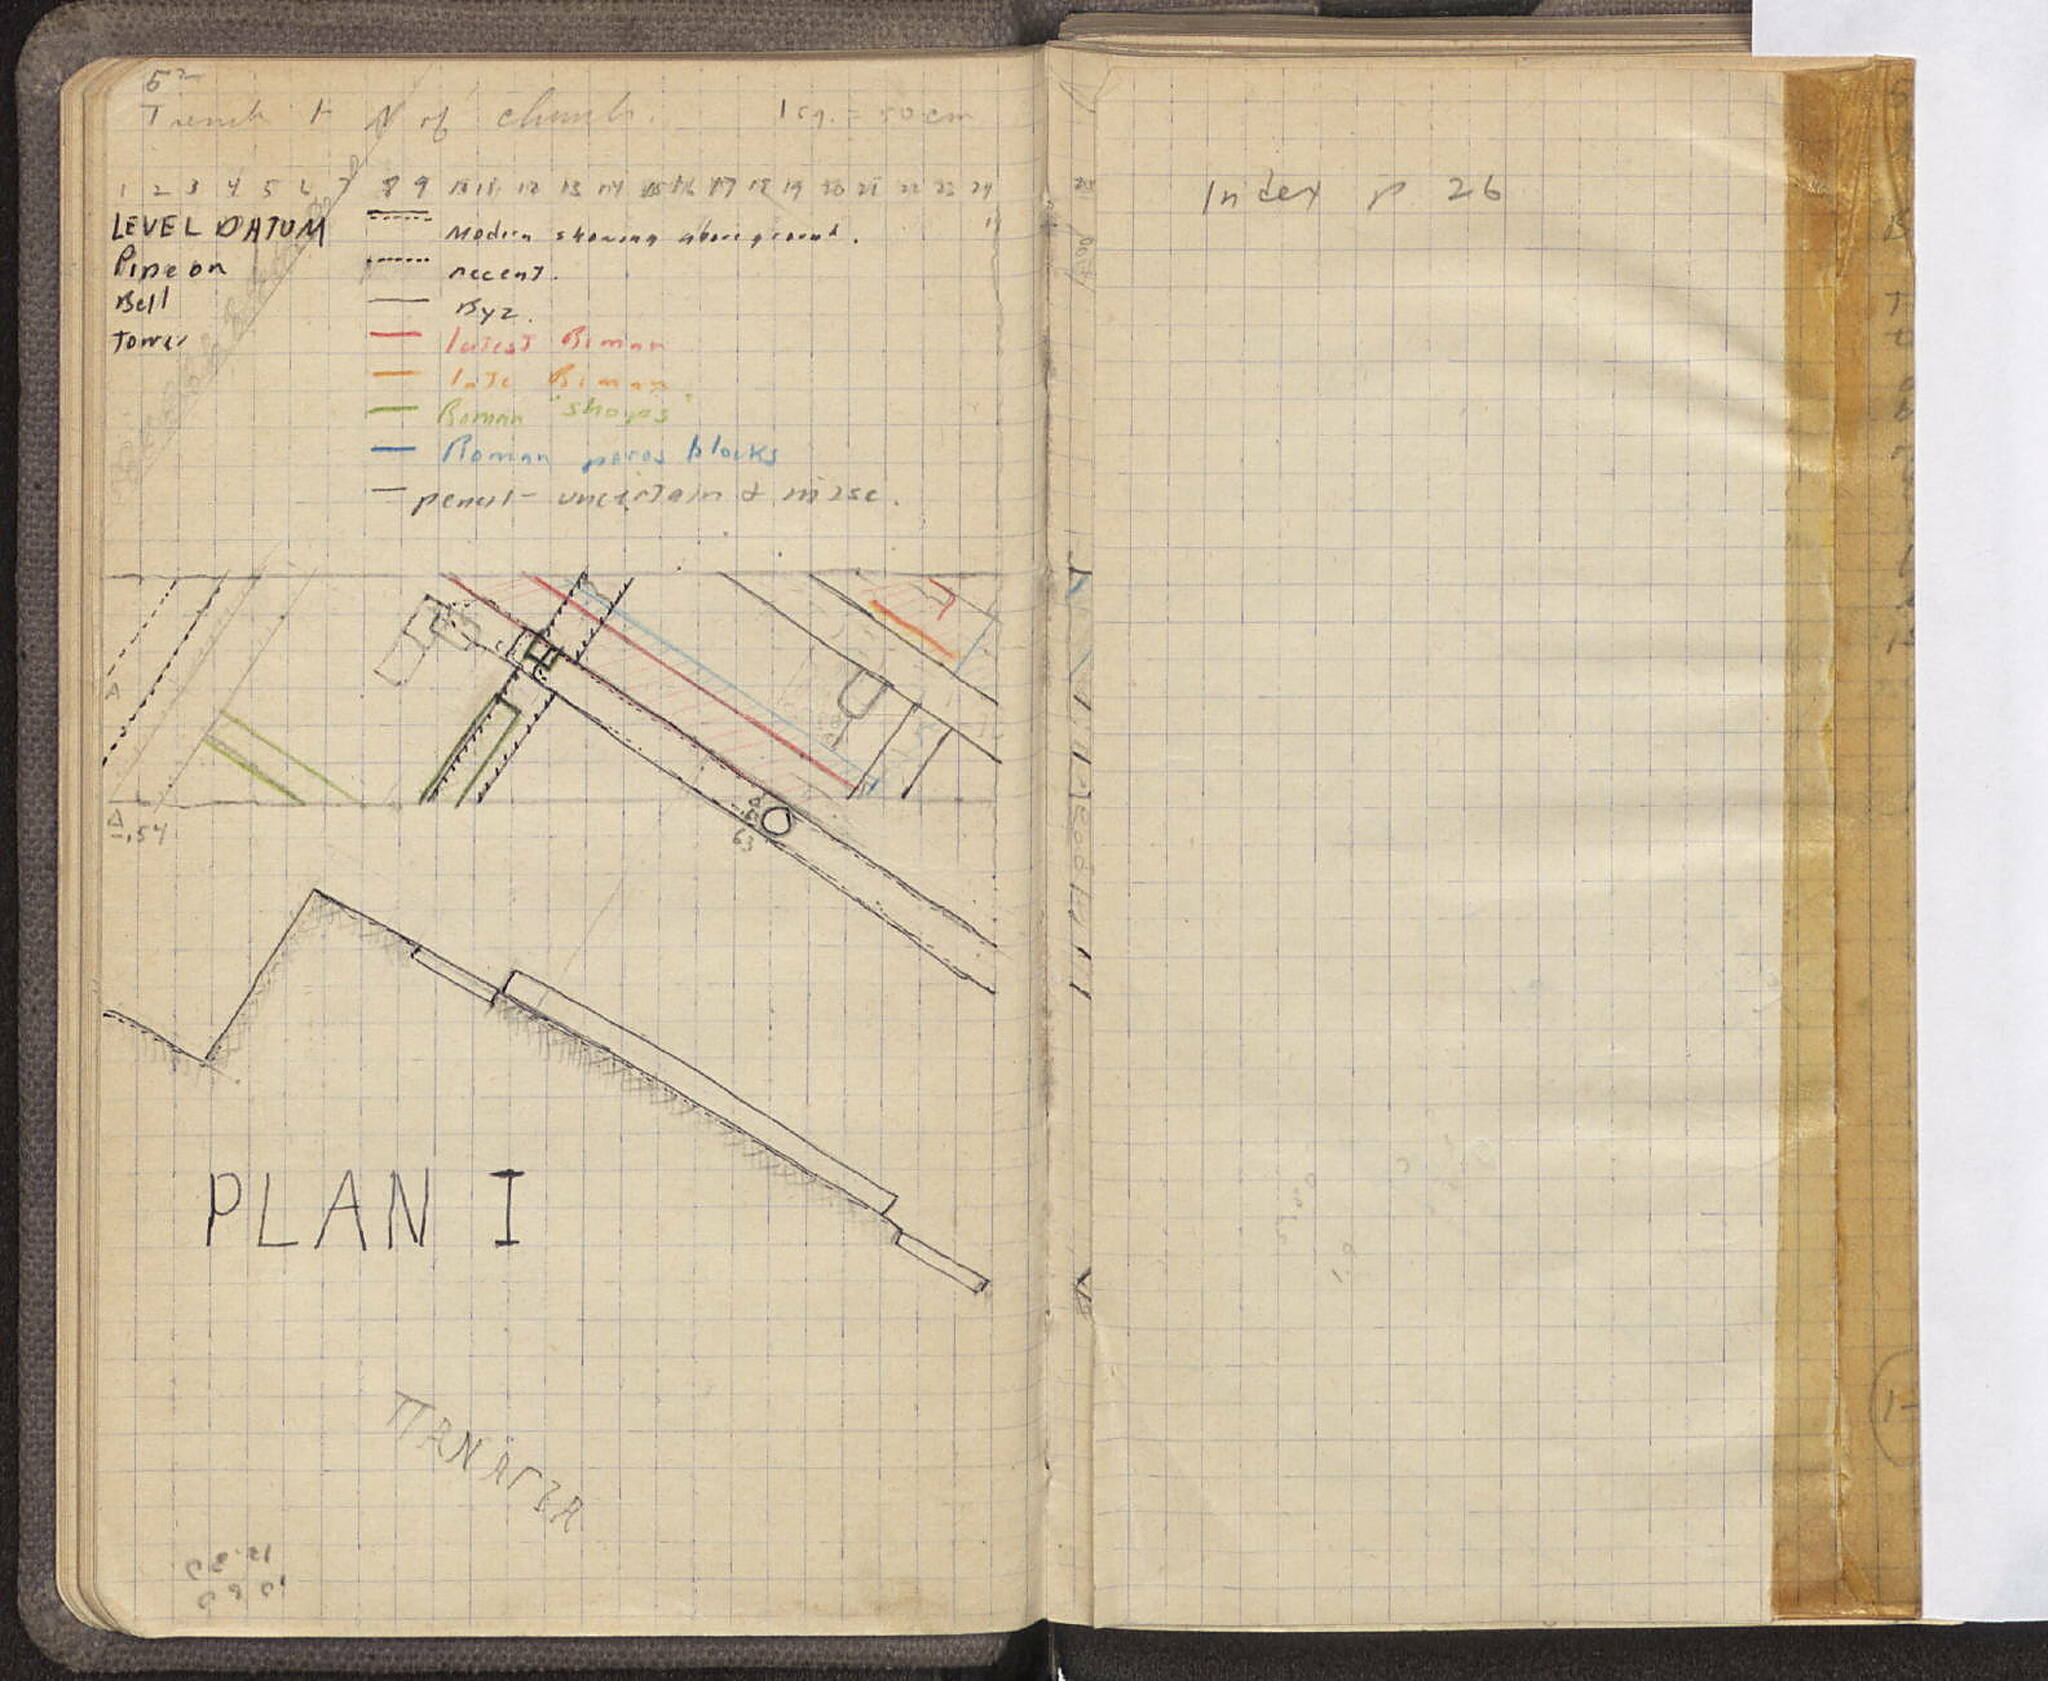 52
Trench + N of church. 1 sq. = 50 cm
1 2 3 4 5 6 7 8 9 10 11 12 13 14 15 16 17 18 19 20 21 22 23 24
LEVEL DATUM
Pipe on
Bell
Tower
Modern showing above ground.
recent.
Byz.
latest Roman
late Roman
Roman "shops"
Roman poros blocks
pencil - uncertain & misc.
A
Δ
-.54
63
PLAN I
ΠΑΝΑΓΙΑ
12.30
Index p 26